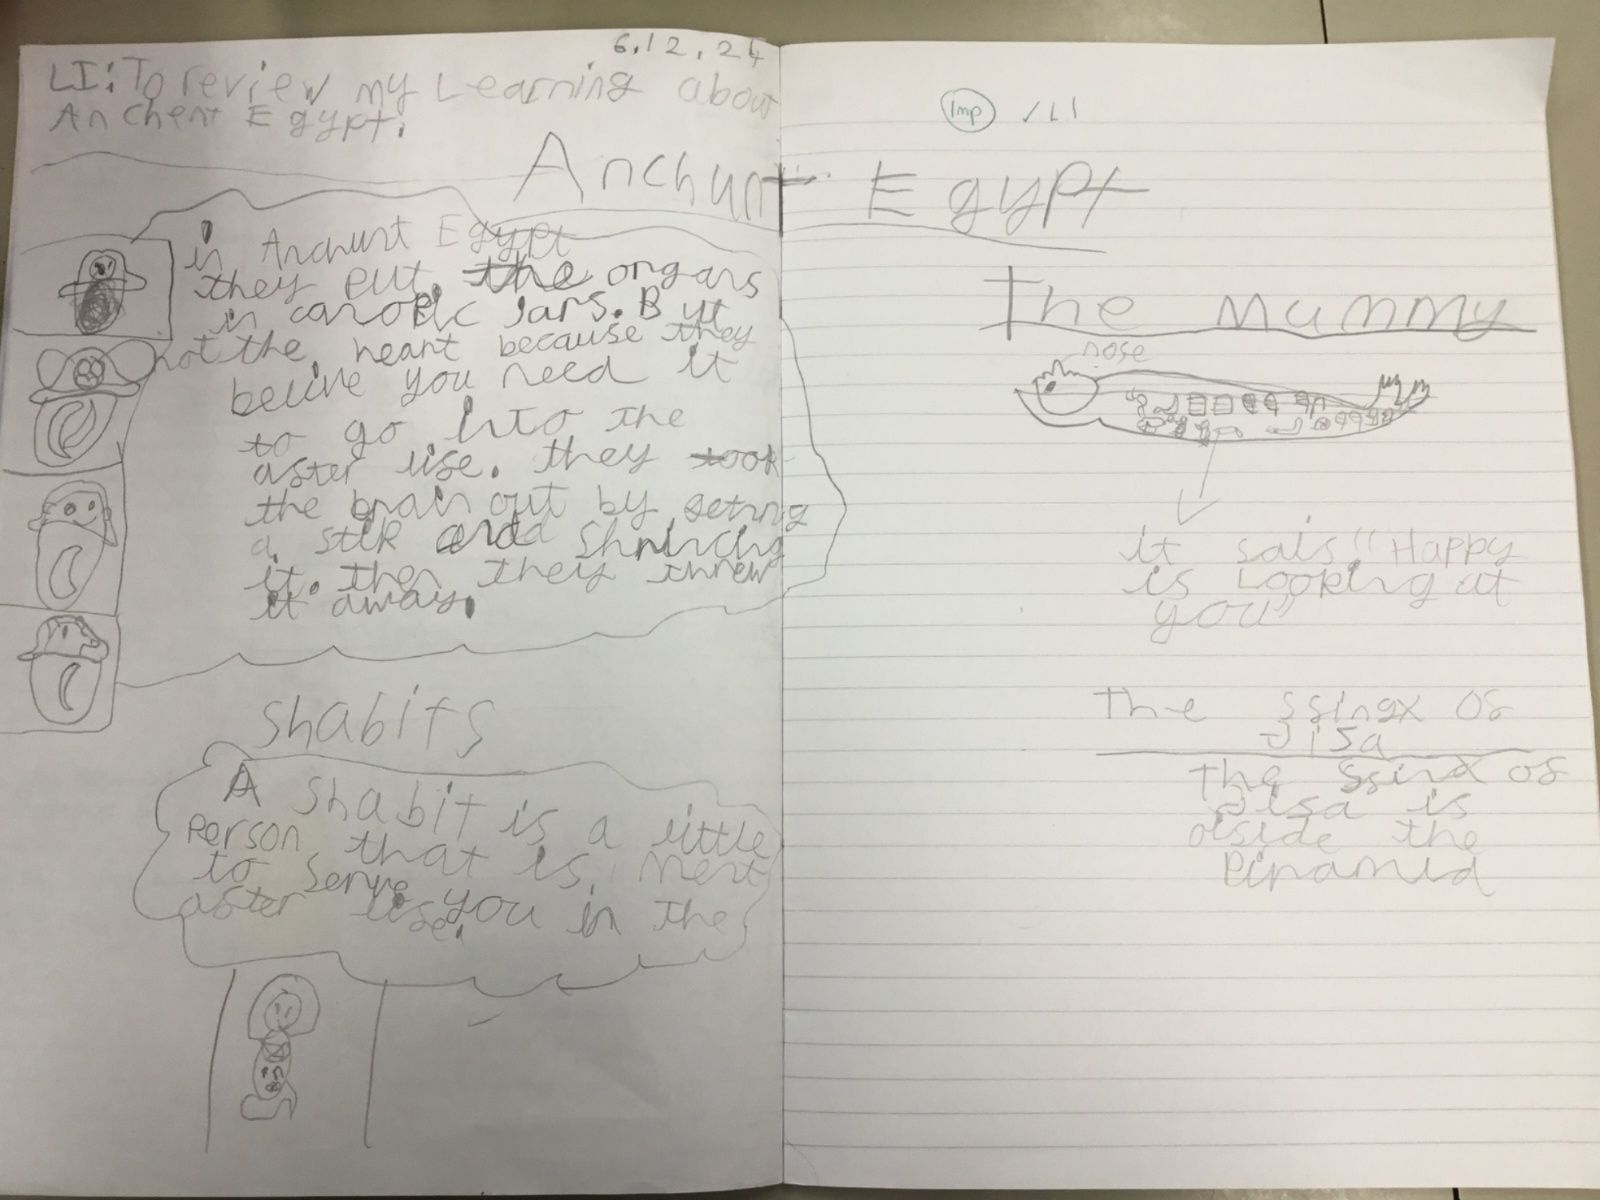 6.12.24
LI: To review my Learning about
Anchent Egypt.
Imp ✓LI
Anchunt Egypt
in Anchunt Egypt
they put the organs
in canopic Jars. But
not the heart because they
belive you need it
to go into the
aster lise. they took
the brain out by geting
a stik and
it. then they threw
it away.
shabits
A shabit is a little
Person that is ment
to serve you in the
aster lise.
The Mummy
nose
it sais "Happy
is Looking at
you"
The ssingx os
Jisa
The Ssinx os
Jisa is
olside the
Piramid